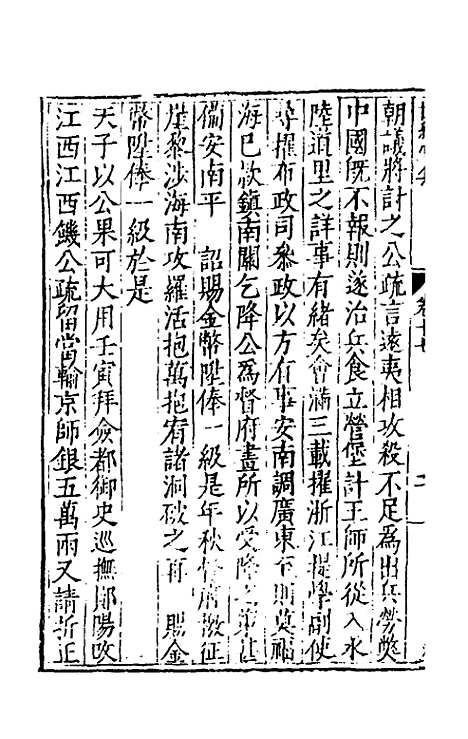 朝議將計之公疏言遠夷相攻殺不足為出兵勞獘
中國既不報則遂治兵食立營堡計王師所從入水
陸道里之詳事有緒矣會滿三載擢浙江提學副使
尋擢布政司參政以方有事安南調廣東至則莫
海已款鎮南關乞降公為督府畫所以受降
備安南平 詔賜金幣陞俸一級是年秋督府檄征
崖黎涉海南攻羅活抱萬抱宥諸洞破之再 賜金
幣陞俸一級於是
天子以公果可大用壬寅拜僉都御史巡撫鄖陽改
江西江西饑公疏留當輸京師銀五萬兩又請折正
卷十